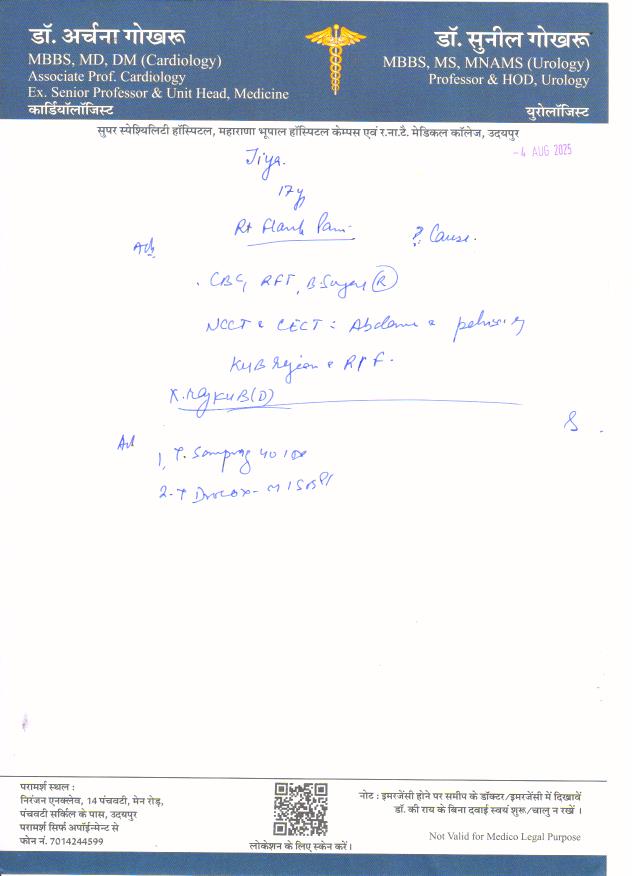 डॉ. अर्चना गोखरू
MBBS, MD, DM (Cardiology)
Associate Prof. Cardiology
Ex. Senior Professor & Unit Head, Medicine
कार्डियॉलॉजिस्ट
डॉ. सुनील गोखरू
MBBS, MS, MNAMS (Urology)
Professor & HOD, Urology
युरोलॉजिस्ट
सुपर स्पेश्यिलिटी हॉस्पिटल, महाराणा भूपाल हॉस्पिटल केम्पस एवं र.ना.टै. मेडिकल कॉलेज, उदयपुर
-4 AUG 2025
Jiya.
17y
Rt Flank Pain
? Cause.
Adv
CBC, RFT, B Sugar (R)
NCCT & CECT : Abdomen & pelvis
KUB region &
X.ray KUB (D)
Ad
1, T. 40 1
2. T
परामर्श स्थल :
निरंजन एनक्लेव, 14 पंचवटी, मेन रोड़,
पंचवटी सर्किल के पास, उदयपुर
परामर्श सिर्फ अपॉईन्मेन्ट से
फोन नं. 7014244599
लोकेशन के लिए स्केन करें।
नोट : इमरजेंसी होने पर समीप के डॉक्टर/इमरजेंसी में दिखावें
डॉ. की राय के बिना दवाई स्वयं शुरू/चालु न रखें ।
Not Valid for Medico Legal Purpose